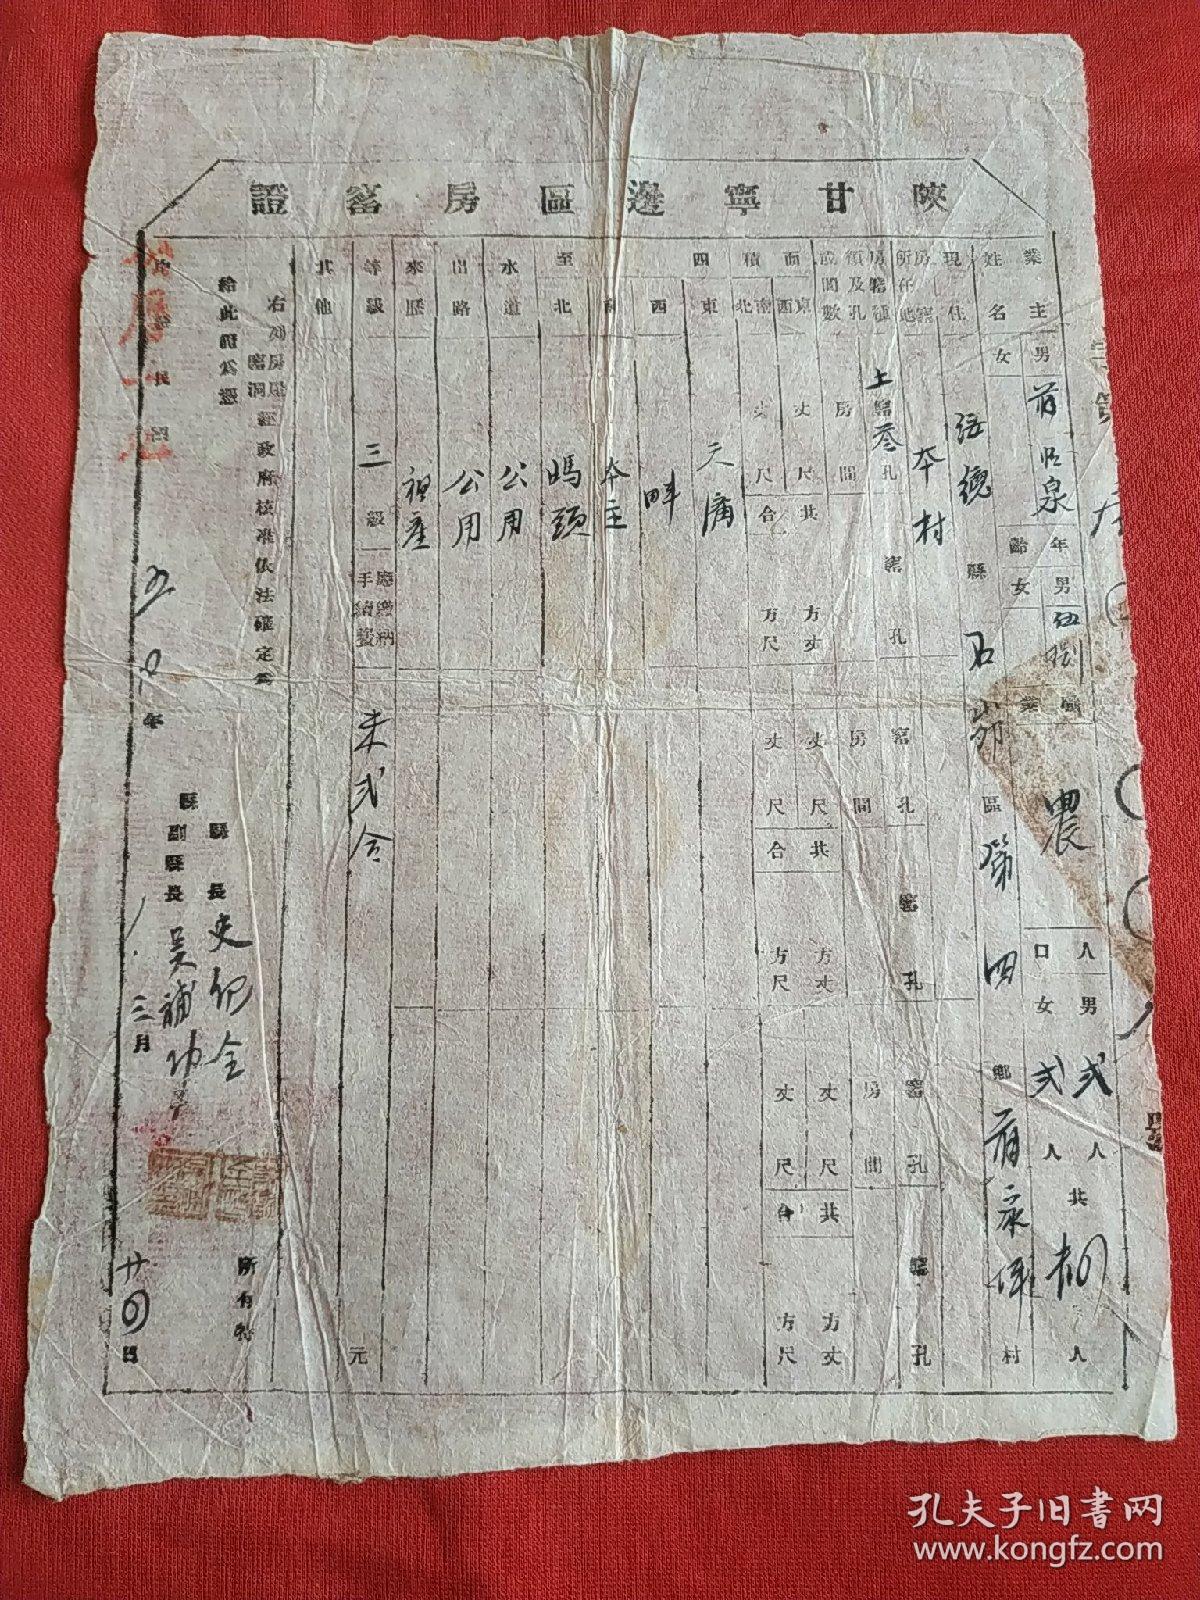 陝甘寧邊區房窰證
業主
姓名
男
女
泉
年齡
男
女
伍捌
職業
農
人口
男
女
弍人
弍人
共
人
現住
綏德
縣
石峁
區
第四
鄉
村
房窰所在地
本村
房窰種類及孔或間數
上窰叁孔
房間
窰孔
窰孔
房間
窰孔
窰孔
房間
窰孔
面積
東西
南北
丈尺
丈尺
共合
方丈
方尺
丈尺
丈尺
共合
方丈
方尺
丈尺
丈尺
共合
方丈
方尺
四至
東
西
畔
南
本主
北
塄頭
水道
公用
出路
公用
來歷
祖產
等級
三級
應繳納手續費
米弍合
元
其他
右列房屋窰洞經政府核准依法確定為
所有特
給此證為憑
縣長
史紀全
縣副縣長
吳補功
五〇年
三月
廿四日
孔夫子旧书网
www.kongfz.com